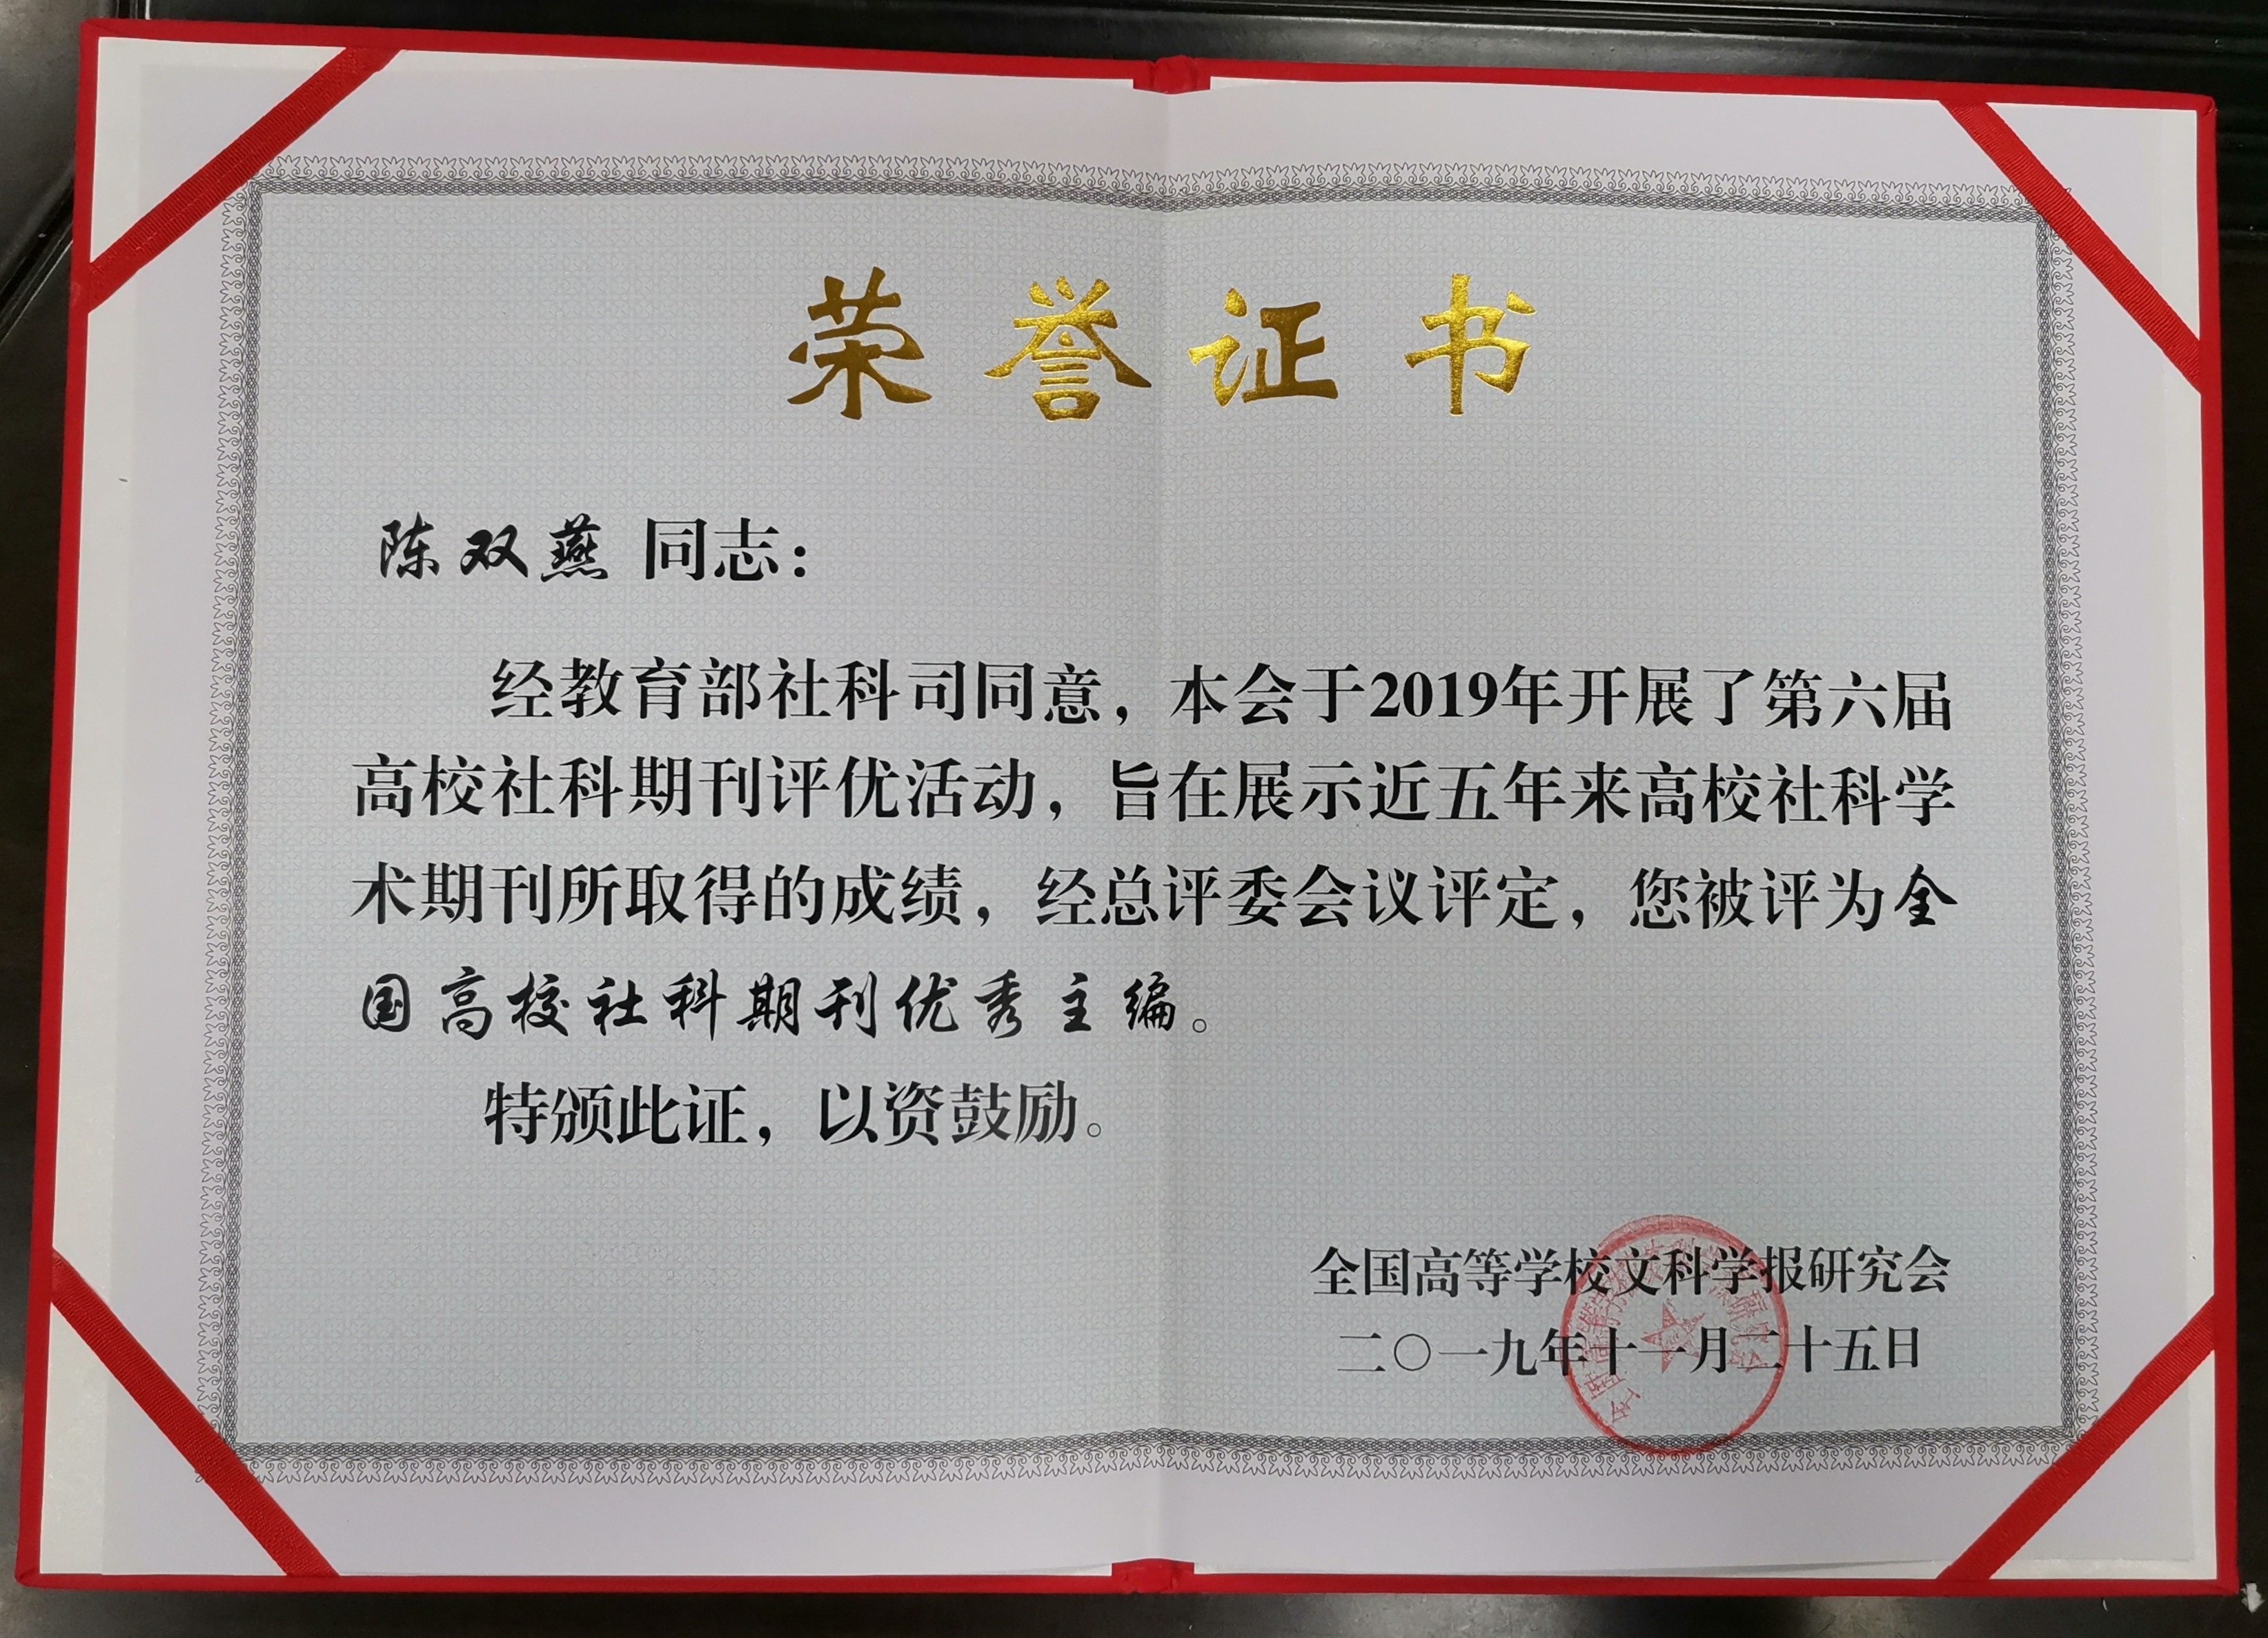 荣誉证书
陈双燕 同志：
经教育部社科司同意，本会于2019年开展了第六届
高校社科期刊评优活动，旨在展示近五年来高校社科学
术期刊所取得的成绩，经总评委会议评定，您被评为全
国高校社科期刊优秀主编。
特颁此证，以资鼓励。
全国高等学校文科学报研究会
二〇一九年十一月二十五日